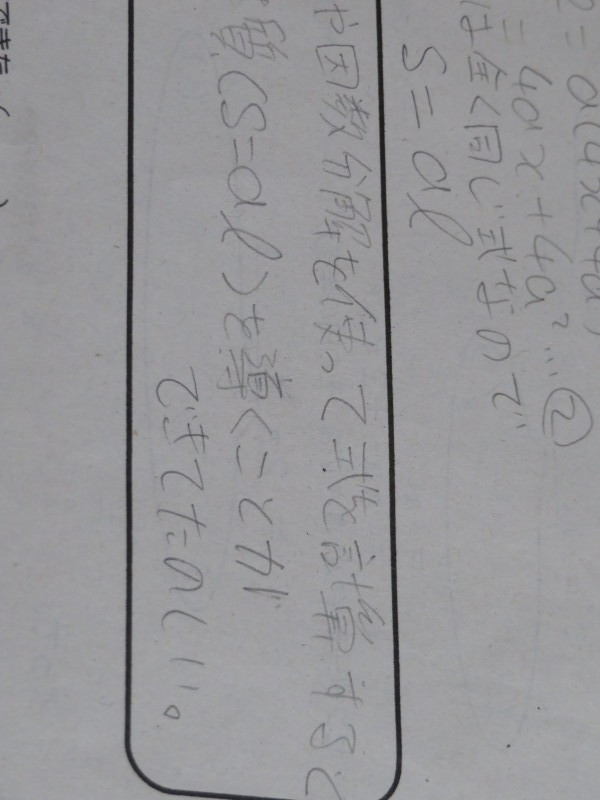 = a(4x+4a)
= 4ax+4a² … ②
は全く同じ式なので
S=al
や因数分解を使って式を計算すると
質(S=al)を導くことが
できてたのしい。
できた